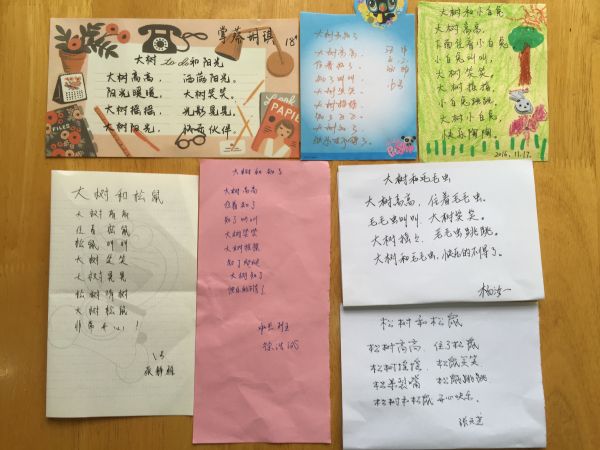 大树和阳光
大树高高， 洒满阳光。
阳光暖暖， 大树笑笑。
大树摇摇， 光影晃晃。
大树阳光， 伙伴。
18#
大树和知了
大树高高，
住着知了，
知了叫叫，
大树笑笑，
大树摇摇，
知了
大树知了，
快乐得不得了。
大树和小白兔
大树高高，
下面住着小白兔
小白兔叫叫，
大树笑笑，
大树摇摇，
小白兔跳跳，
大树小白兔，
快乐陶陶。
2016.11.17.
大树和松鼠
大树高高
住着松鼠
松鼠叫叫
大树笑笑
大树晃晃
松树
大树松鼠
非常开心！
大树和知了
大树高高
住着知了
知了叫叫
大树笑笑
大树摇摇
知了跳跳
大树知了
快乐的不得了！
大树和毛毛虫
大树高高，住着毛毛虫。
毛毛虫叫叫，大树笑笑。
大树摇摇，毛毛虫跳跳。
大树和毛毛虫，快乐的不得了。
松树和松鼠
松树高高，住了松鼠
松树摇摇，松鼠笑笑
松果裂嘴 松鼠跳跳
松树和松鼠 开心快乐.